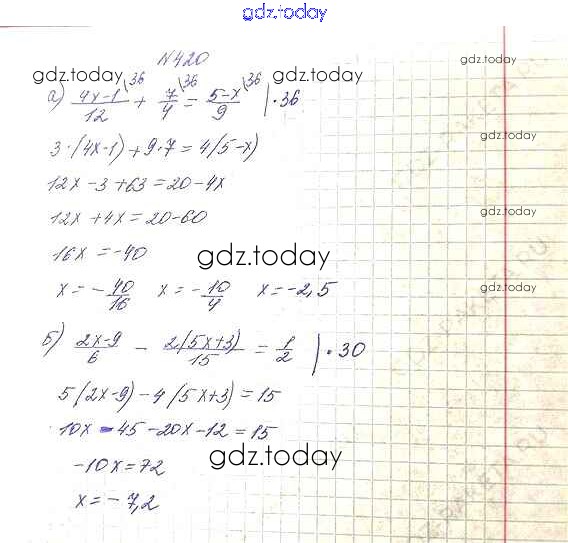 gdz.today
№420
gdz.today gdz.today gdz.today
а) (4x-1)/12 \36 + 7/4 \36 = (5-x)/9 \36 | · 36
3·(4x-1)+9·7=4(5-x)
gdz.today
12x-3+63=20-4x
12x+4x=20-60
gdz.today
16x=-40
gdz.today
x=-40/16 x=-10/4 x=-2,5
gdz.today
б) (2x-9)/6 - 2(5x+3)/15 = 1/2 | · 30
5(2x-9)-4(5x+3)=15
10x-45-20x-12=15
gdz.today
-10x=72
x=-7,2